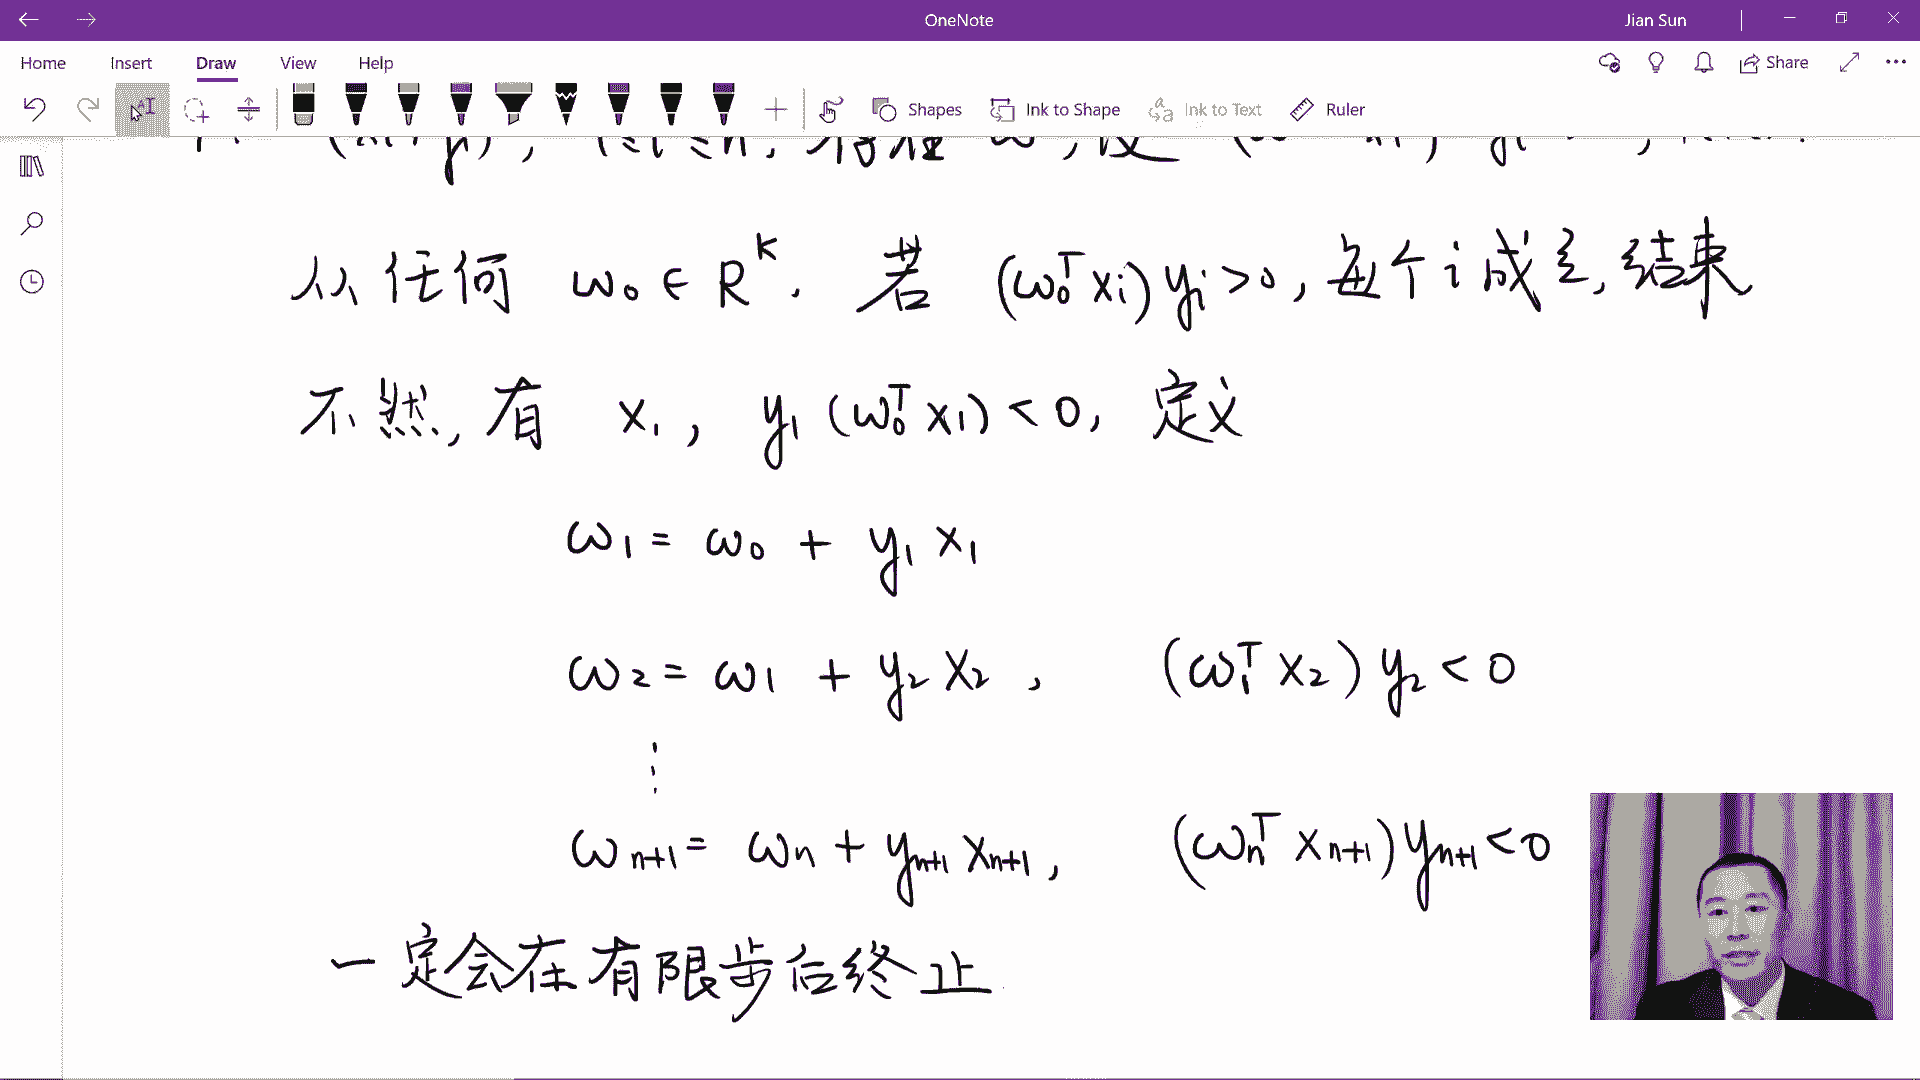 OneNote
Jian Sun
Home Insert Draw View Help Share
Shapes Ink to Shape Ink to Text Ruler
从任何 ω₀ ∈ R^K . 若 (ω₀ᵀ xᵢ) yᵢ > 0, 每个 i 成立, 结束
不然, 有 x₁, y₁ (ω₀ᵀ x₁) < 0, 定义
ω₁ = ω₀ + y₁ x₁
ω₂ = ω₁ + y₂ x₂ , (ω₁ᵀ x₂) y₂ < 0
⋮
ωₙ₊₁ = ωₙ + yₙ₊₁ xₙ₊₁ , (ωₙᵀ xₙ₊₁) yₙ₊₁ < 0
一定会在有限步后终止